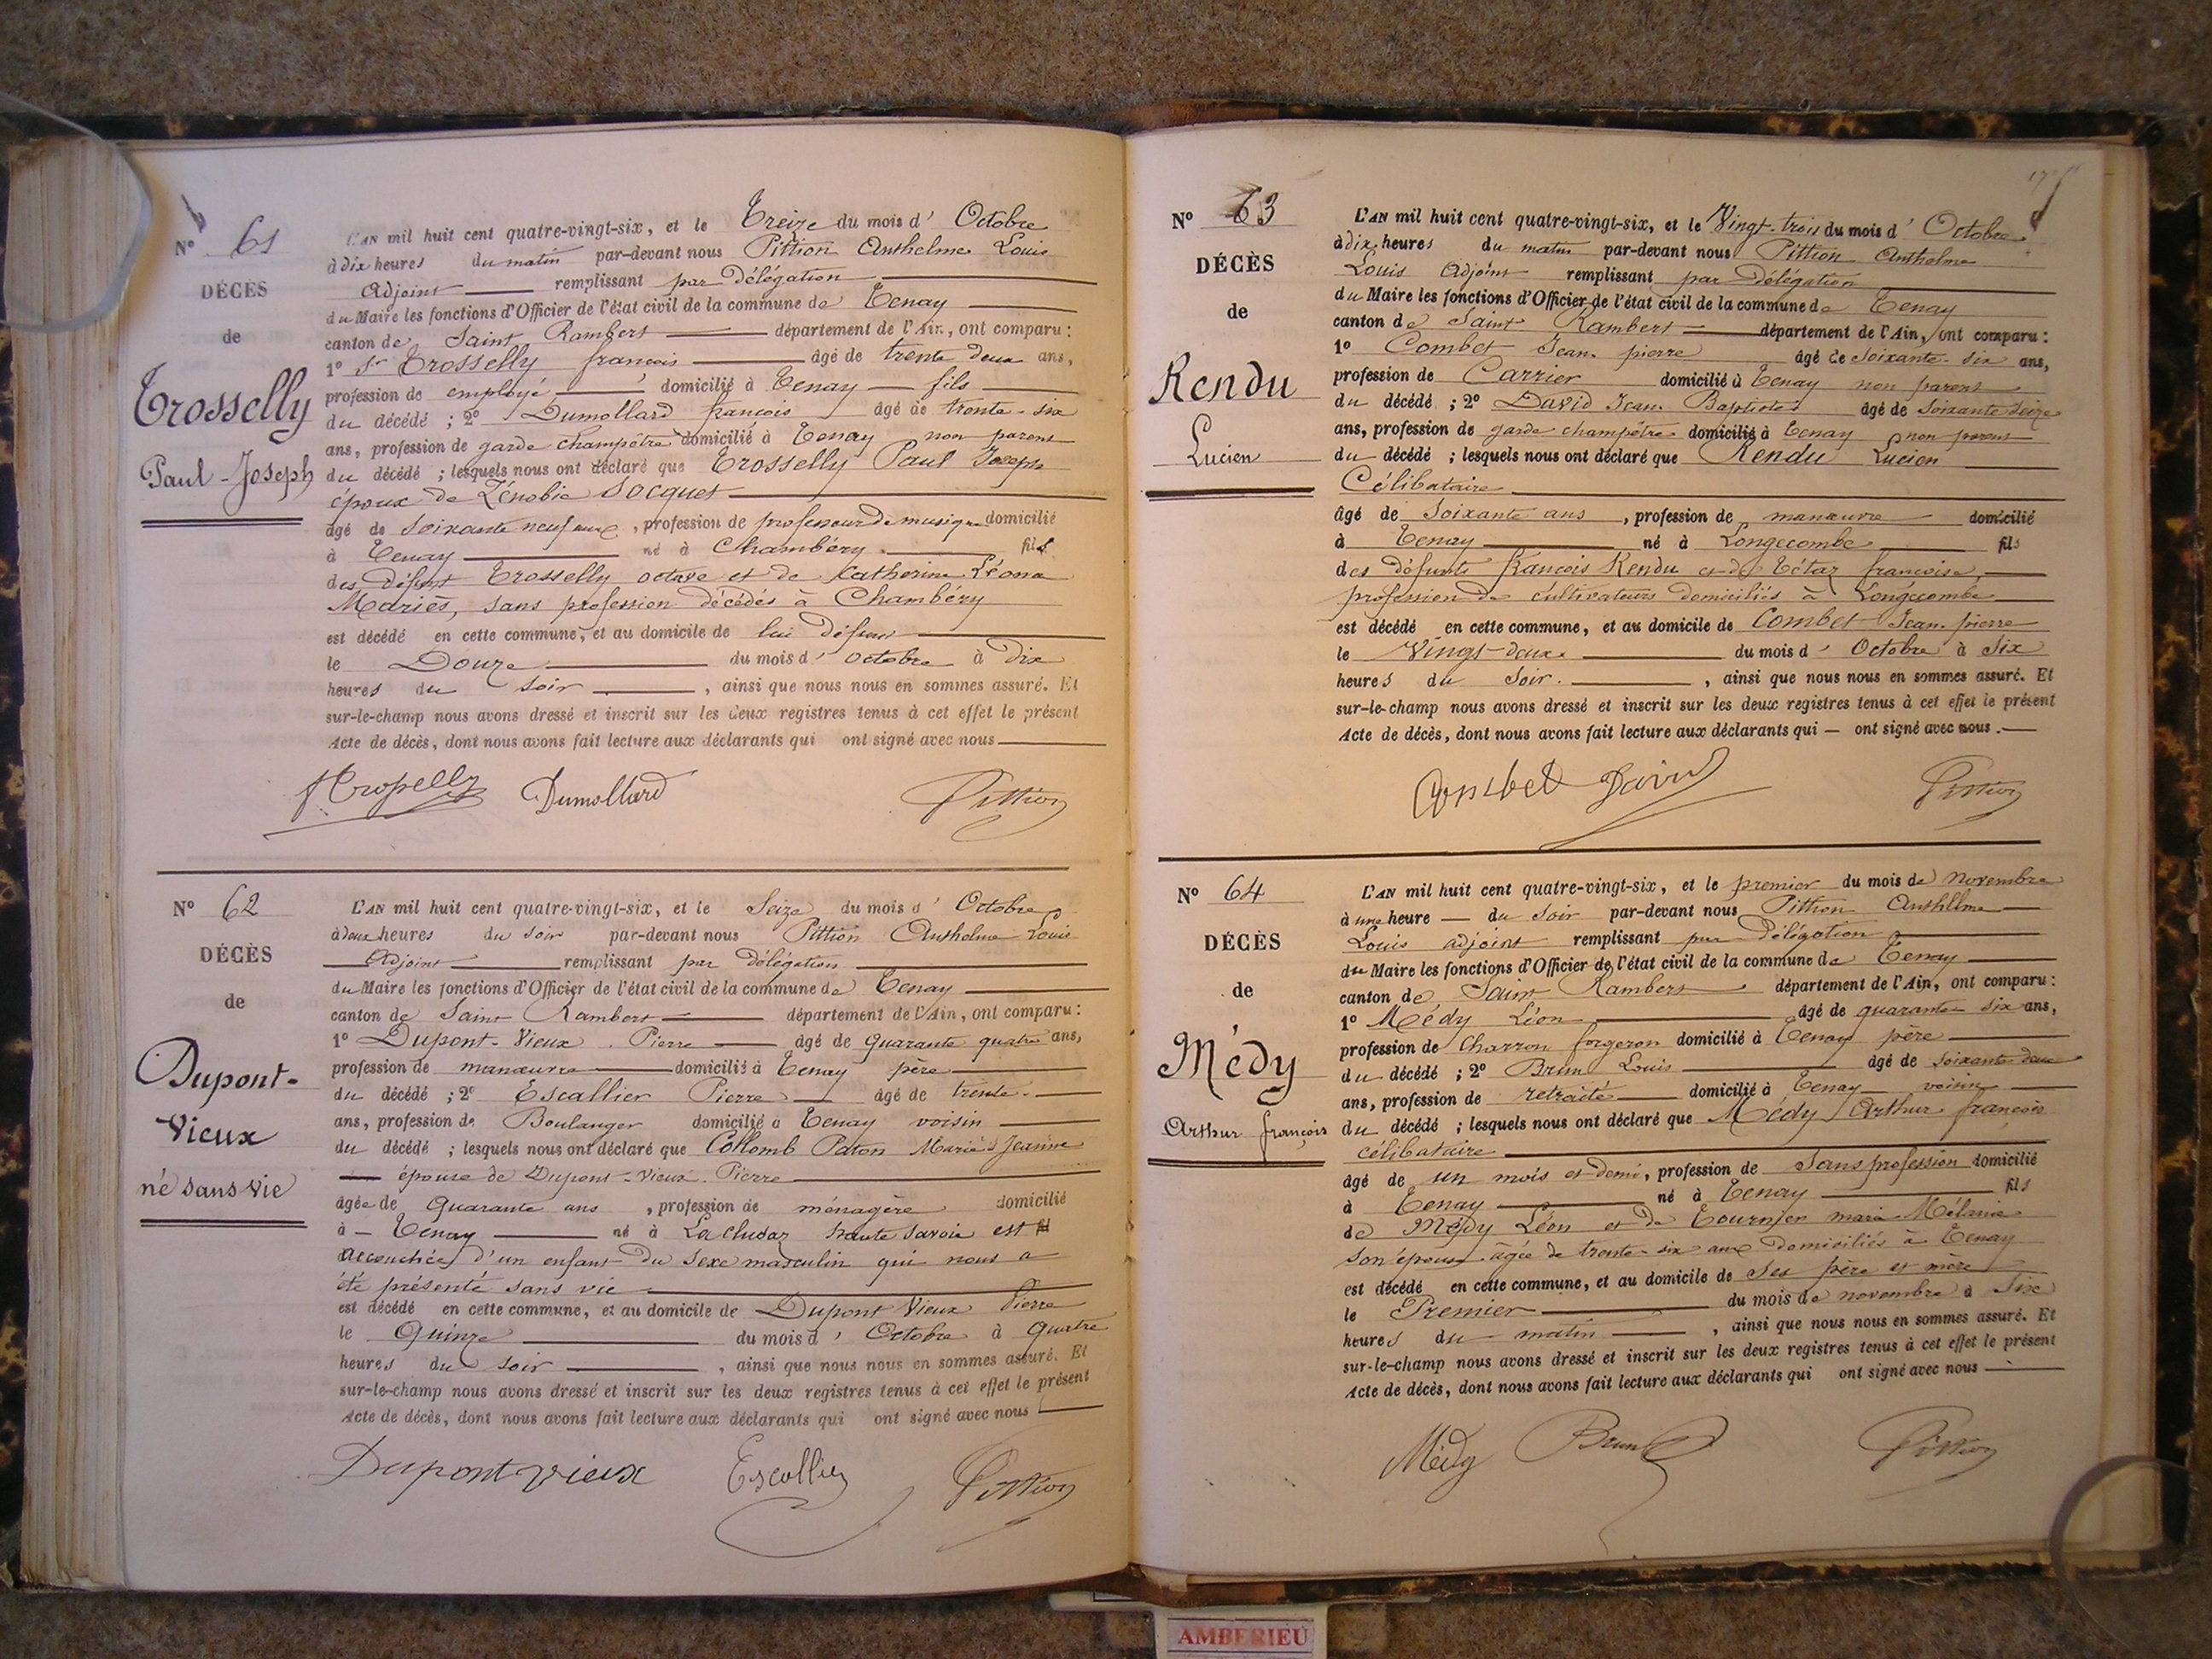 N° 61
DÉCÈS
de
Trosselly
Paul-Joseph
L'AN mil huit cent quatre-vingt-six, et le Treize du mois d' Octobre
à dix heures du matin par-devant nous Pittion Anthelme Louis
Adjoint remplissant par Délégation
du Maire les fonctions d'Officier de l'état civil de la commune de Tenay
canton de Saint Rambert département de l'Ain, ont comparu :
1° Sr Trosselly françois âgé de trente deux ans,
profession de employé domicilié à Tenay fils
du décédé ; 2° Dumollard françois âgé de trente-six
ans, profession de garde champêtre domicilié à Tenay non parent
du décédé ; lesquels nous ont déclaré que Trosselly Paul Joseph
époux de Zénobie Socquet
âgé de soixante neuf ans, profession de professeur de musique domicilié
à Tenay né à Chambéry fils
des défunt Trosselly octave et de Catherine Léona
Mariés, sans profession décédés à Chambéry
est décédé en cette commune, et au domicile de lui défunt
le Douze du mois d' octobre à Dix
heures du soir, ainsi que nous nous en sommes assuré. Et
sur-le-champ nous avons dressé et inscrit sur les deux registres tenus à cet effet le présent
Acte de décès, dont nous avons fait lecture aux déclarants qui ont signé avec nous
Trosselly Dumollard Pittion
N° 62
DÉCÈS
de
Dupont-
Vieux
né sans vie
L'AN mil huit cent quatre-vingt-six, et le Seize du mois d' Octobre
à deux heures du soir par-devant nous Pittion Anthelme Louis
Adjoint remplissant par délégation
du Maire les fonctions d'Officier de l'état civil de la commune de Tenay
canton de Saint Rambert département de l'Ain, ont comparu :
1° Dupont-Vieux Pierre âgé de Quarante quatre ans,
profession de manœuvre domicilié à Tenay père
du décédé ; 2° Escallier Pierre âgé de trente
ans, profession de Boulanger domicilié à Tenay voisin
du décédé ; lesquels nous ont déclaré que Collomb Paton Marie Jeanne
épouse de Dupont-Vieux Pierre
âgée de Quarante ans, profession de ménagère domicilié
à Tenay né à Lacluzaz haute Savoie est
accouchée d'un enfant du sexe masculin qui nous a
été présenté sans vie
est décédé en cette commune, et au domicile de Dupont Vieux Pierre
le Quinze du mois d' Octobre à Quatre
heures du soir, ainsi que nous nous en sommes assuré. Et
sur-le-champ nous avons dressé et inscrit sur les deux registres tenus à cet effet le présent
Acte de décès, dont nous avons fait lecture aux déclarants qui ont signé avec nous
Dupont vieux Escallier Pittion
N° 63
DÉCÈS
de
Rendu
Lucien
L'AN mil huit cent quatre-vingt-six, et le Vingt-trois du mois d' Octobre
à dix heures du matin par-devant nous Pittion Anthelme
Louis Adjoint remplissant par Délégation
du Maire les fonctions d'Officier de l'état civil de la commune de Tenay
canton de Saint Rambert département de l'Ain, ont comparu :
1° Combet Jean-pierre âgé de soixante-six ans,
profession de Carrier domicilié à Tenay non parent
du décédé ; 2° David Jean-Baptiste âgé de soixante seize
ans, profession de garde champêtre domicilié à Tenay non parent
du décédé ; lesquels nous ont déclaré que Rendu Lucien
Célibataire
âgé de Soixante ans, profession de manœuvre domicilié
à Tenay né à Longecombe fils
des défunts François Rendu et de Tétaz françoise
profession de cultivateurs domiciliés à Longecombe
est décédé en cette commune, et au domicile de Combet Jean-pierre
le Vingt-deux du mois d' Octobre à Six
heures du Soir, ainsi que nous nous en sommes assuré. Et
sur-le-champ nous avons dressé et inscrit sur les deux registres tenus à cet effet le présent
Acte de décès, dont nous avons fait lecture aux déclarants qui — ont signé avec nous.
Combet David Pittion
N° 64
DÉCÈS
de
Médy
Arthur françois
L'AN mil huit cent quatre-vingt-six, et le premier du mois de novembre
à une heure du soir par-devant nous Pittion Anthelme
Louis adjoint remplissant par délégation
du Maire les fonctions d'Officier de l'état civil de la commune de Tenay
canton de Saint Rambert département de l'Ain, ont comparu :
1° Médy Léon âgé de quarante six ans,
profession de Charron forgeron domicilié à Tenay père
du décédé ; 2° Brun Louis âgé de soixante-deux
ans, profession de retraité domicilié à Tenay voisin
du décédé ; lesquels nous ont déclaré que Médy Arthur françois
célibataire
âgé de un mois et demi, profession de Sans profession domicilié
à Tenay né à Tenay fils
de Médy Léon et de Tournier marie Mélanie
son épouse âgée de trente-six ans Domiciliés à Tenay
est décédé en cette commune, et au domicile de Ses père et mère
le Premier du mois de novembre à Six
heures du matin, ainsi que nous nous en sommes assuré. Et
sur-le-champ nous avons dressé et inscrit sur les deux registres tenus à cet effet le présent
Acte de décès, dont nous avons fait lecture aux déclarants qui ont signé avec nous
Médy Brun Pittion
AMBERIEU